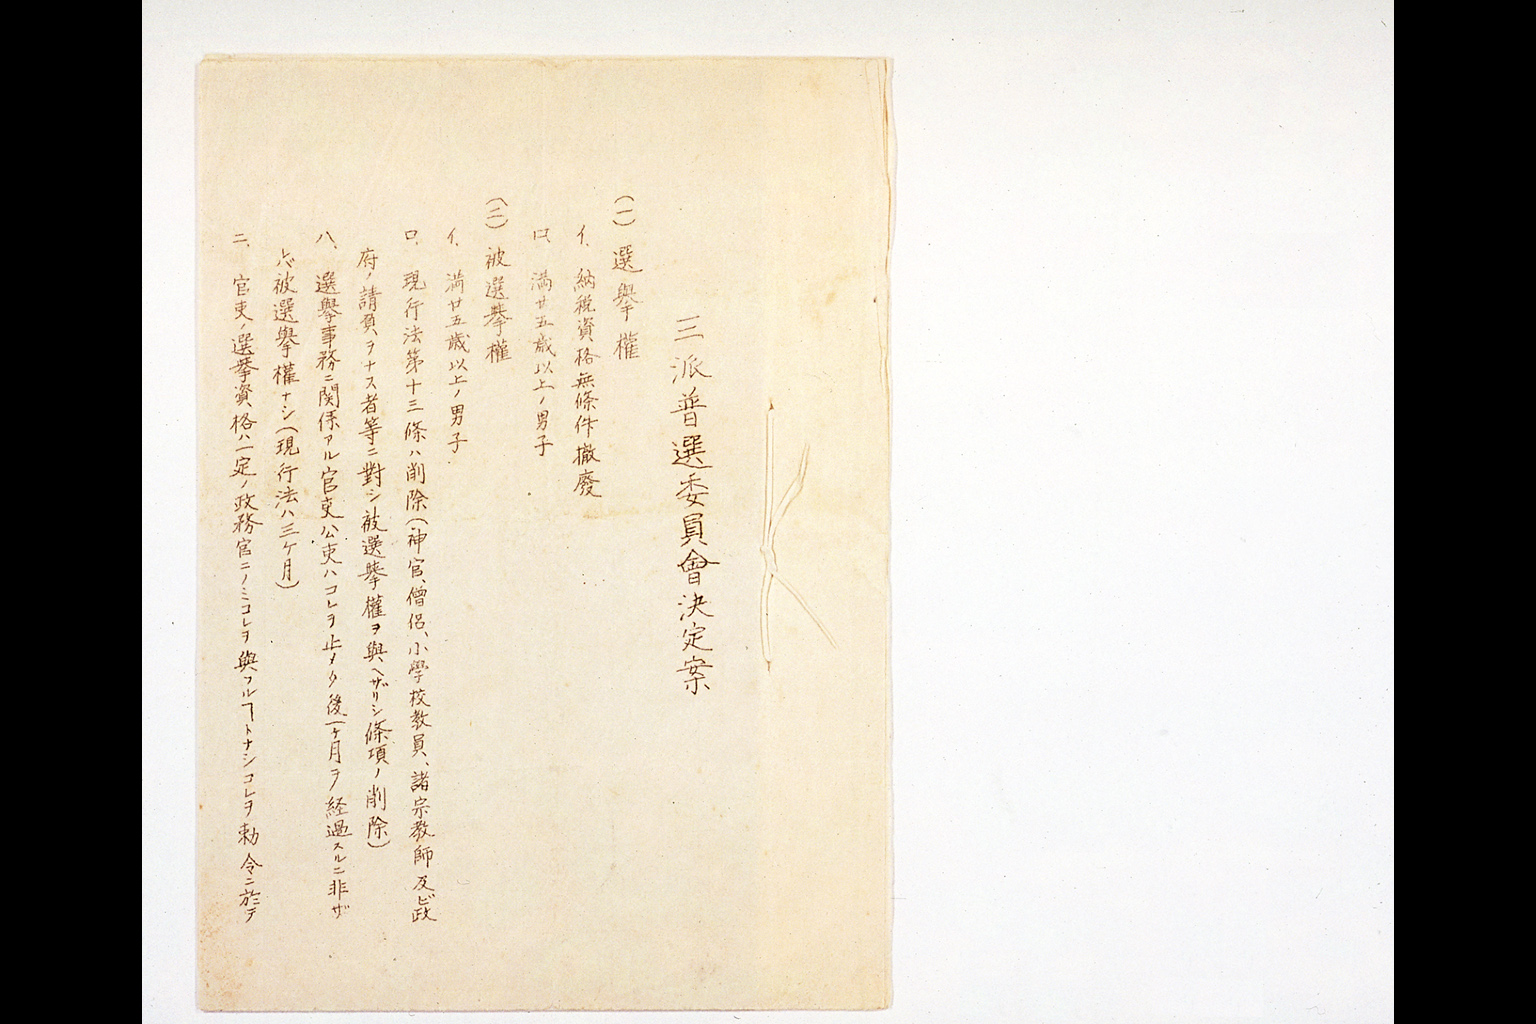 三派普選委員會決定案
(一)選擧權
イ、納税資格無條件撤廢
ロ、満廿五歳以上ノ男子
(二)被選擧權
イ、満廿五歳以上ノ男子
ロ、現行法第十三條ハ削除(神官、僧侶、小學校教員、諸宗教師及ビ政
府ノ請負ヲナス者等ニ對シ被選擧權ヲ與ヘザリシ條項ノ削除)
ハ、選擧事務ニ関係アル官吏公吏ハコレヲ止メタ後一ケ月ヲ経過スルニ非ザ
レバ被選擧權ナシ(現行法ハ三ケ月)
ニ、官吏ノ選擧資格ハ一定ノ政務官ニノミコレヲ與フルヿトナシコレヲ勅令ニ於テ